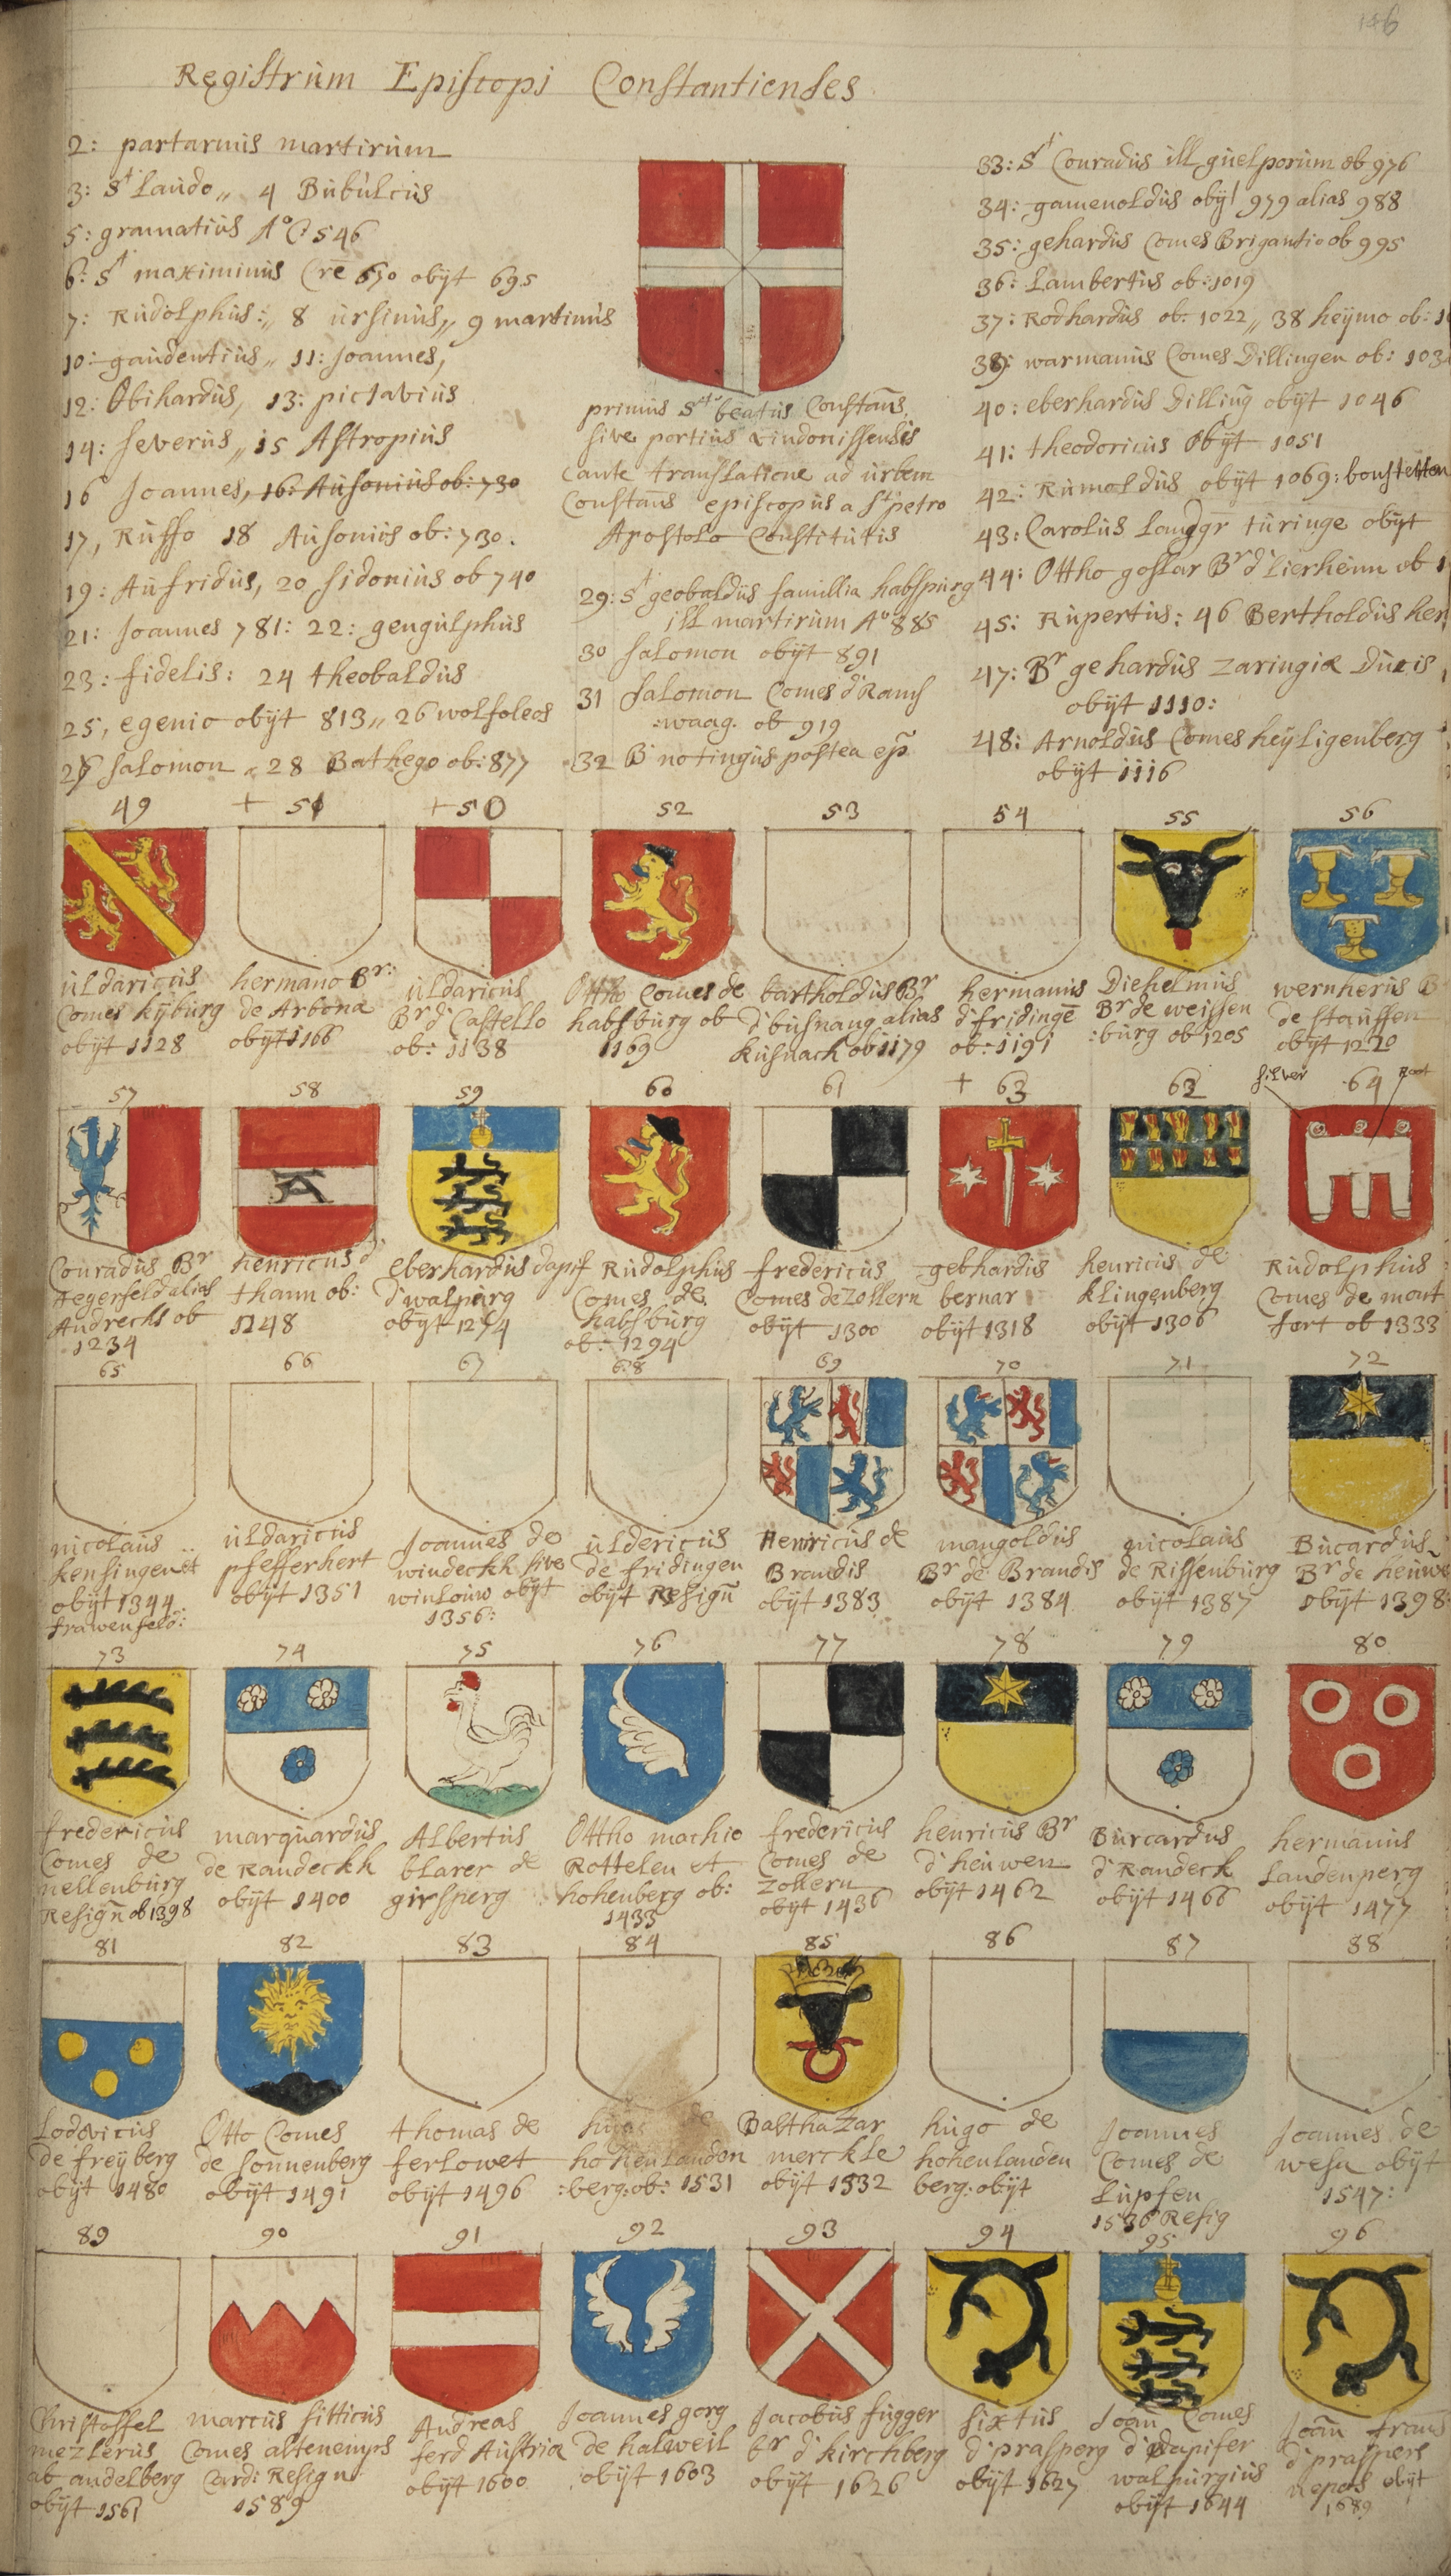 146
Registrum Episcopi Constantienses
2: partarnus martirum
3: St Laudo,, 4 Bubulcus
5: gramatius Ao 546
6: St maximinus Cre 630 obÿt 695
7: Rudolphus:,, 8 ursinus,, 9 martinus
10: gaudentius,, 11: Joannes,
12: Obihardus, 13: pictavius
14: Severus,, 15 Astropius
16 Joannes, 16: Ausonius ob: 730
17, Ruffo 18 Ausonius ob: 730.
19: Aufridus, 20 Sidonius ob 740
21: Joannes 781: 22: gengulphus
23: fidelis: 24 theobaldus
25, egenio obÿt 813,, 26 wolfoleos
27 Salomon 28 Bathego ob: 877
primus St beatus Constans.
sive portius vindonissensis
cante translatione ad urbem
Constans episcopus a St petro
Apostolo Constitutis
29: St geobaldus famillia habspurg
ill martirum Ao 885
30 Salomon obÿt 891
31 Salomon Comes d' Rams
:waag. ob 919
32 B notingus postea ep
33: St Conradus ill guelporum ob 976
34: gamenoldus obÿt 979 alias 988
35: gehardus Comes Brigantio ob 995
36: Lambertus ob: 1019
37: Rodhardus ob: 1022,, 38 heÿmo ob: 1
39: warmanus Comes Dillingen ob: 103
40: eberhardus Dilling obÿt 1046
41: theodoricus obÿt 1051
42: Rumoldus obÿt 1069: bonstetten
43: Carolus Landgr turinge obÿt
44: Ottho goslar Br d' Lierheim ob 1
45: Rupertus: 46 Bertholdus her
47: Br gehardus zaringiæ Ducis
obÿt 1110:
48: Arnoldus Comes heÿligenberg
obÿt 1116
49 + 51 + 50 52 53 54 55 56
uldaricus
Comes kÿburg
obÿt 1128
hermano Br:
de Arbona
obÿt 1166
uldaricus
Br d' Castello
ob: 1138
Ottho Comes de
habsburg ob
1169
bartholdus Br
d' busnang alias
kusnach ob 1179
hermanus
d' fridinge
ob: 1191
Diehelmus
Br de weissen
:burg ob 1205
wernherus B
de Stauffen
obÿt 1220
57 58 59 60 61 + 63 62 silver 64 root
Conradus Br
Hegerfeld alias
Andrechs ob
1234
henricus d'
thann ob:
1248
A
eberhardus dapif
d' walpurg
obÿt 1274
Rudolphus
Comes de
habsburg
ob: 1294
fredericus
Comes de Zollern
obÿt 1300
gebhardus
bernar
obÿt 1318
henricus de
klingenberg
obÿt 1306
Rudolphus
Comes de mont
fort ob 1333
65 66 67 68 69 70 71 72
nicolaus
kensingen et
obÿt 1344
frawenfeld:
uldaricus
pfefferhert
obÿt 1351
Joannes de
windeckh sive
winlouw obÿt
1356:
uldericus
de fridingen
obÿt Resign
Henricus de
Brandis
obÿt 1383
mangoldus
Br de Brandis
obÿt 1384
nicolaus
de Rissenburg
obÿt 1387
Bucardus
Br de heuwe
obÿt 1398:
73 74 75 76 77 78 79 80
fredericus
Comes de
nellenburg
Resign ob 1398
marquardus
de Randeckh
obÿt 1400
Albertus
blarer de
girsperg
Ottho mochio
Rottelen et
hohenberg ob:
1433
fredericus
Comes de
Zollern
obÿt 1436
henricus Br
d' heuwen
obÿt 1462
Burcardus
d' Randeck
obÿt 1466
hermanus
Landenperg
obÿt 1477
81 82 83 84 85 86 87 88
Lodovicus
de freÿberg
obÿt 1480
Otto Comes
de Sonnenberg
obÿt 1491
thomas de
ferlowet
obÿt 1496
hugo de
hohenlanden
:berg: ob: 1531
Balthazar
merckle
obÿt 1532
hugo de
hohenlanden
berg: obÿt
Joannes
Comes de
Lupfen
1536 Resig
Joannes de
wesa obÿt
1547:
89 90 91 92 93 94 95 96
Christoffel
mezlerus
ab andelberg
obÿt 1561
marcus sitticus
Comes altenemps
Cardi Resign
1589
Andreas
ferd Austria
obÿt 1600
Joannes gorg
de halweil
obÿt 1603
Jacobus fugger
br d' kirchberg
obÿt 1626
sixtus
d' prasperg
obÿt 1627
Joan Comes
d' Dapifer
walpurgius
obÿt 1644
Joan frans
d' prasperg
nepos obÿt
1689